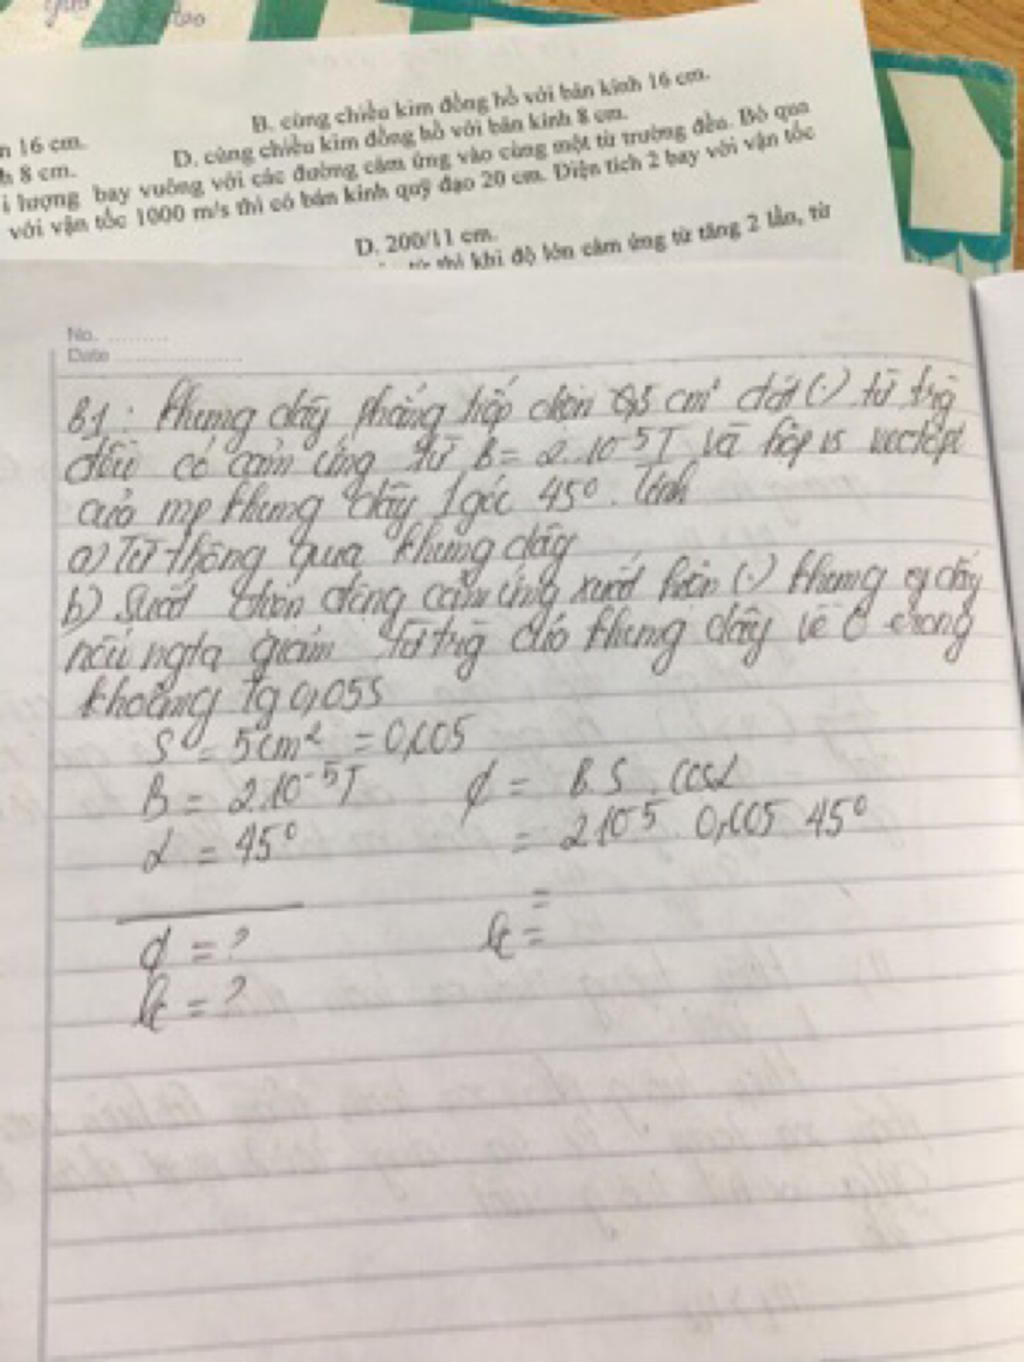 B. cùng chiều kim đồng hồ với bán kính 16 cm.
n 16 cm.
D. cùng chiều kim đồng hồ với bán kính 8 cm.
h 8 cm.
i lượng bay vuông với các đường cảm ứng vào cùng một từ trường đều. Bỏ qua
với vận tốc 1000 m/s thì có bán kính quỹ đạo 20 cm. Điện tích 2 bay với vận tốc
D. 200/11 cm.
thì khi độ lớn cảm ứng từ tăng 2 lần, từ
No.
Date
B1: Khung dây phẳng tiếp diện 5 cm² đặt (.) từ trg
đều có cảm ứng từ B = 2.10⁻⁵T và hợp vs vectơ pt
của mp khung dây 1 góc 45°. Tính
a) Từ thông qua khung dây
b) Suất điện động cảm ứng xuất hiện (.) khung dây
nếu ngta giảm từ trg của khung dây về 0 trong
khoảng tg 0,05s
S = 5cm² = 0,005
B = 2.10⁻⁵T
ϕ = B.S.cosα
α = 45°
= 2.10⁻⁵ 0,005 45°
=
ϕ = ?
ec =
ec = ?